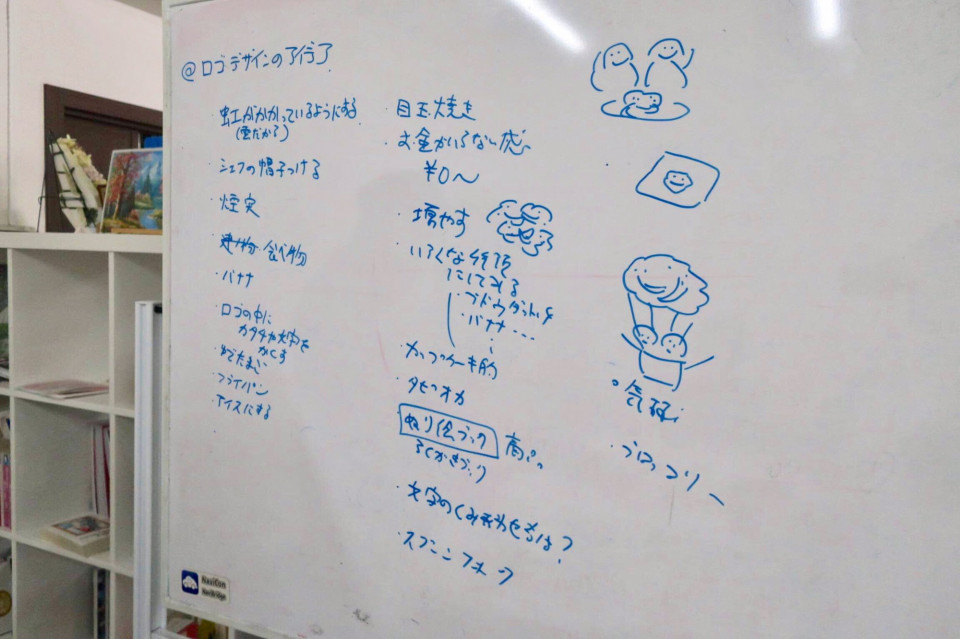 @ロゴデザインのアイデア
・虹がかかっているようにする
(雲だから)
・シェフの帽子つける
・煙突
・建物 食べ物
・バナナ
・ロゴの中に
カタチや文字を
かくす
・ゆでたまご
・フライパン
・アイスにする
・目玉焼き
・お金がいらない感じ
¥0〜
・増やす
・いろんな
にしてみる
・ブドウ
・バナナ…
・カップケーキ的
・タピオカ
・ぬり絵ブック
らくがき
・文字の
・スプーン フォーク
・気球
・ブロッコリー
NaviDon